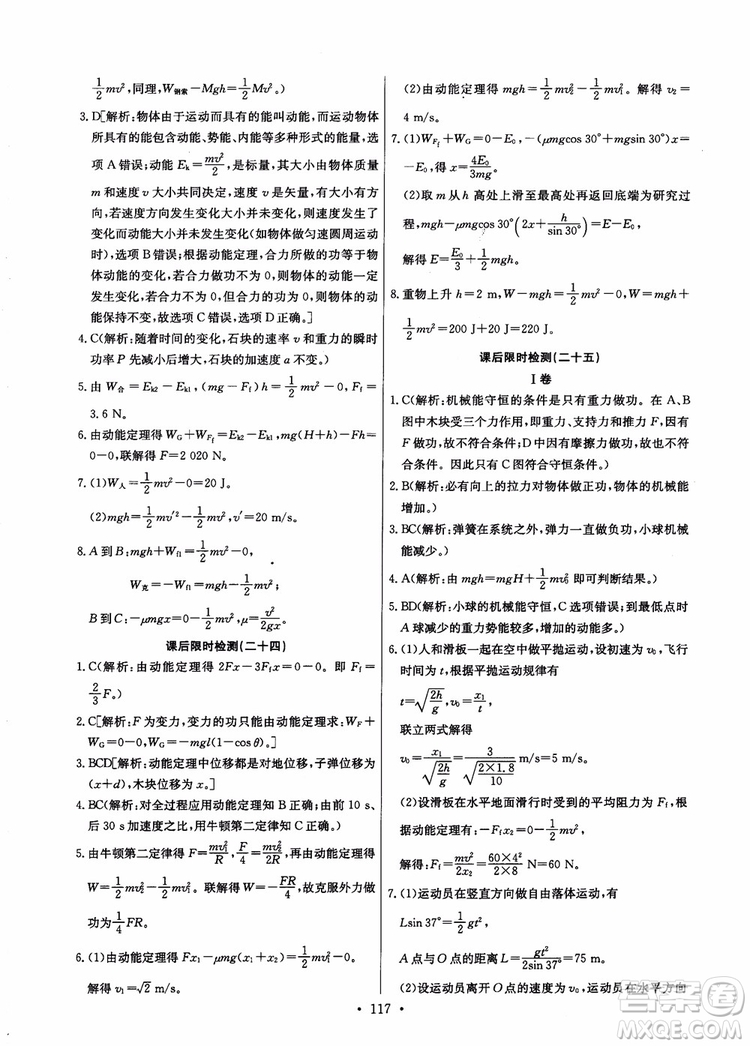 $\frac{1}{2}mv^2$,同理,$W_{钢索}-Mgh=\frac{1}{2}Mv^2$。)
3. D[解析:物体由于运动而具有的能叫动能,而运动物体
所具有的能包含动能、势能、内能等多种形式的能量,选
项 A 错误;动能 $E_k=\frac{mv^2}{2}$,是标量,其大小由物体质量
m 和速度 v 大小共同决定,速度 v 是矢量,有可能只有
方向发生变化大小并未变化,则速度发生了
变化而动能大小并未发生变化(如物体做匀速圆周运动
时),选项 B 错误;根据动能定理,合力所做的功等于物
体动能的变化,若合力做功不为 0,则物体的动能一定
发生变化,但合力不为 0,合力的功可能为 0,则物体的动
能保持不变,故选项 C 错误,选项 D 正确。]
4. C(解析:随着时间的变化,石块的速率 v 和重力的瞬时
功率 P 先减小后增大,石块的加速度 a 不变。)
5. 由 $W_合=E_{k2}-E_{k1}$,$(mg-F_f)h=\frac{1}{2}mv^2$,解得 $F_f=$
3.6 N。
6. 由动能定理得 $W_G+W_{F_f}=E_{k2}-E_{k1}$,$mg(H+h)-Fh=$
0-0,联解得 F=2 020 N。
7. (1)$W_人=\frac{1}{2}mv^2-0=20$ J。
(2)$mgh=\frac{1}{2}mv'^2-\frac{1}{2}mv^2$,$v'=20$ m/s。
8. A 到 B:$mgh+W_{f1}=\frac{1}{2}mv^2$,
$W_克=-W_{f1}=mgh-\frac{1}{2}mv^2$;
B 到 C:$-\mu mgx=0-\frac{1}{2}mv^2$,$\mu=\frac{v^2}{2gx}$。
课后限时检测(二十四)
1. C(解析:由动能定理得 $2Fx-3F_fx=0-0$。即 $F_f=$
$\frac{2}{3}F$。)
2. C[解析:F 为变力,变力的功只能由动能定理求:$W_F+$
$W_G=0-0$,$W_G=-mgl(1-\cos\theta)$。]
3. BCD[解析:动能定理中位移都是对地位移,子弹位移为
(x+d),木块位移为 x。]
4. BC(解析:对全过程应用动能定理知 B 正确;由前 10 s、
后 30 s 加速度之比,用牛顿第二定律知 C 正确。)
5. 由牛顿第二定律得 $F=\frac{mv_1^2}{R}$,$\frac{F}{4}=\frac{mv_2^2}{2R}$,再由动能定理得
$W=\frac{1}{2}mv_2^2-\frac{1}{2}mv_1^2$。联解得 $W=-\frac{FR}{4}$,故克服外力做
功为$\frac{1}{4}FR$。
6. (1)由动能定理得 $Fx_1-\mu mg(x_1+x_2)=\frac{1}{2}mv_1^2-0$。
解得 $v_1=\sqrt{2}$ m/s。
(2)由动能定理得 $mgh=\frac{1}{2}mv_2^2-\frac{1}{2}mv_1^2$。解得 $v_2=$
4 m/s。
7. (1)$W_{F_f}+W_G=0-E_0$,$-(\mu mg\cos 30°+mg\sin 30°)x=$
$-E_0$,得 $x=\frac{4E_0}{3mg}$。
(2)取 m 从 h 高处上滑至最高处再返回底端为研究过
程,$mgh-\mu mg\cos 30°\left(2x+\frac{h}{\sin 30°}\right)=E-E_0$,
解得 $E=\frac{E_0}{3}+\frac{1}{2}mgh$。
8. 重物上升 h=2 m,$W-mgh=\frac{1}{2}mv^2-0$,$W=mgh$
$+\frac{1}{2}mv^2=200$ J+20 J=220 J。
课后限时检测(二十五)
I 卷
1. C(解析:机械能守恒的条件是只有重力做功。在 A、B
图中木块受三个力作用,即重力、支持力和推力 F,因有 F
做功,故不符合条件。D 图中因有摩擦力做功,故也不
符合条件。因此只有 C 图符合守恒条件。)
2. B(解析:必有向上的拉力对物体做正功,物体的机械能
增加。)
3. BC(解析:弹簧在系统之外,弹力一直做负功,小球机械
能减少。)
4. A(解析:由 $mgh=mgH+\frac{1}{2}mv_0^2$ 即可判断结果。)
5. BD(解析:小球的机械能守恒,C 选项错误;从 O 到 P 时
A 球减少的重力势能较多,动能增加得较多。)
6. (1)人和滑板一起在空中做平抛运动,设初速度为 $v_0$,飞行
时间为 t,根据平抛运动规律有
$t=\sqrt{\frac{2h}{g}}$,$v_0=\frac{x_1}{t}$,
联立两式解得
$v_0=\frac{x_1}{\sqrt{\frac{2h}{g}}}=\frac{3}{\sqrt{\frac{2×1.8}{10}}}$ m/s=5 m/s。
(2)设滑板在水平地面滑行时受到的平均阻力为 $F_f$,根
据动能定理有:$-F_fx_2=0-\frac{1}{2}mv^2$,
解得:$F_f=\frac{mv^2}{2x_2}=\frac{60×4^2}{2×8}$ N=60 N。
7. (1)运动员在竖直方向做自由落体运动,有
$L\sin 37°=\frac{1}{2}gt^2$,
A 点与 O 点的距离 $L=\frac{gt^2}{2\sin 37°}=75$ m。
(2)设运动员离开 O 点的速度为 $v_0$,运动员在水平方向
117